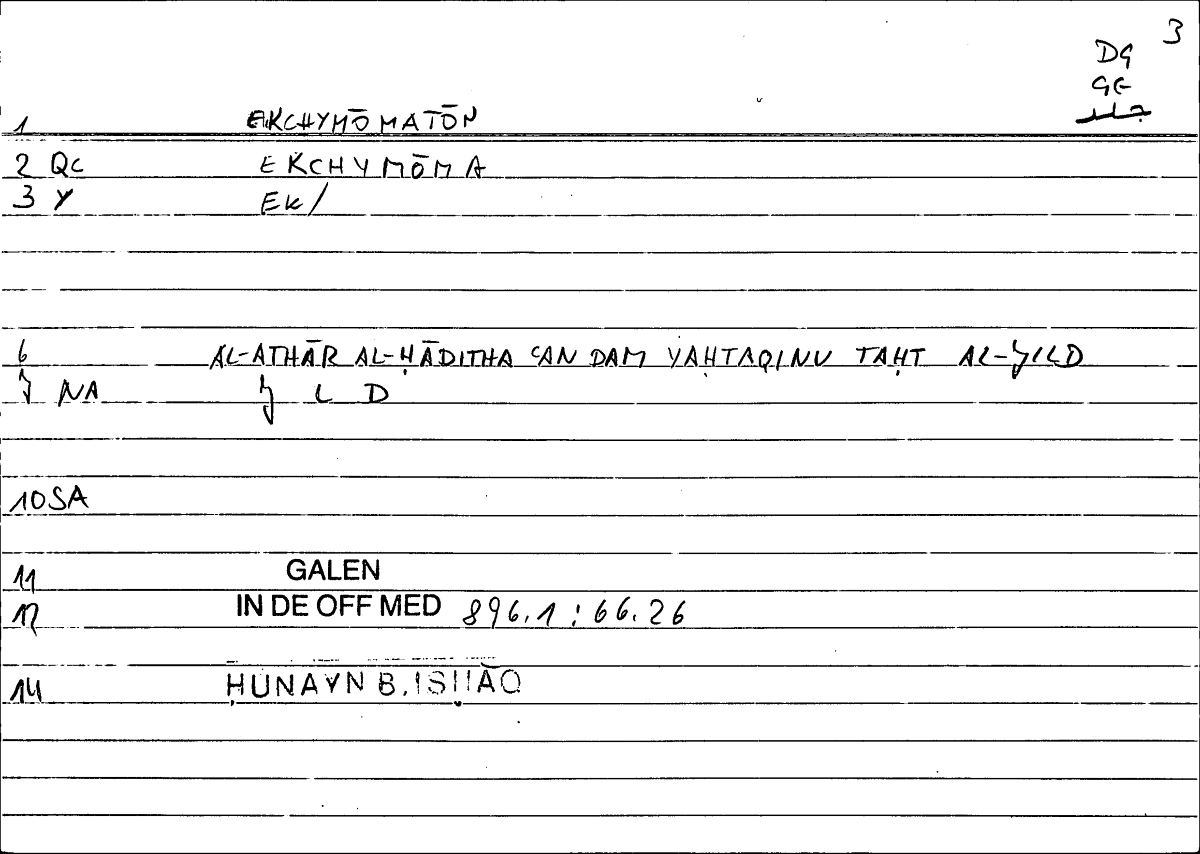 3
DG
GE
جلد
1 EKCHYMŌMATŌN
2 QC EKCHYMŌMA
3 Y EK/
6 AL-ATHĀR AL-ḤĀDITHA ʿAN DAM YAḤTAQINU TAḤT AL-JILD
J NA J L D
10 SA
11 GALEN
12 IN DE OFF MED 896.1 : 66.26
14 ḤUNAYN B. ISḤĀQ